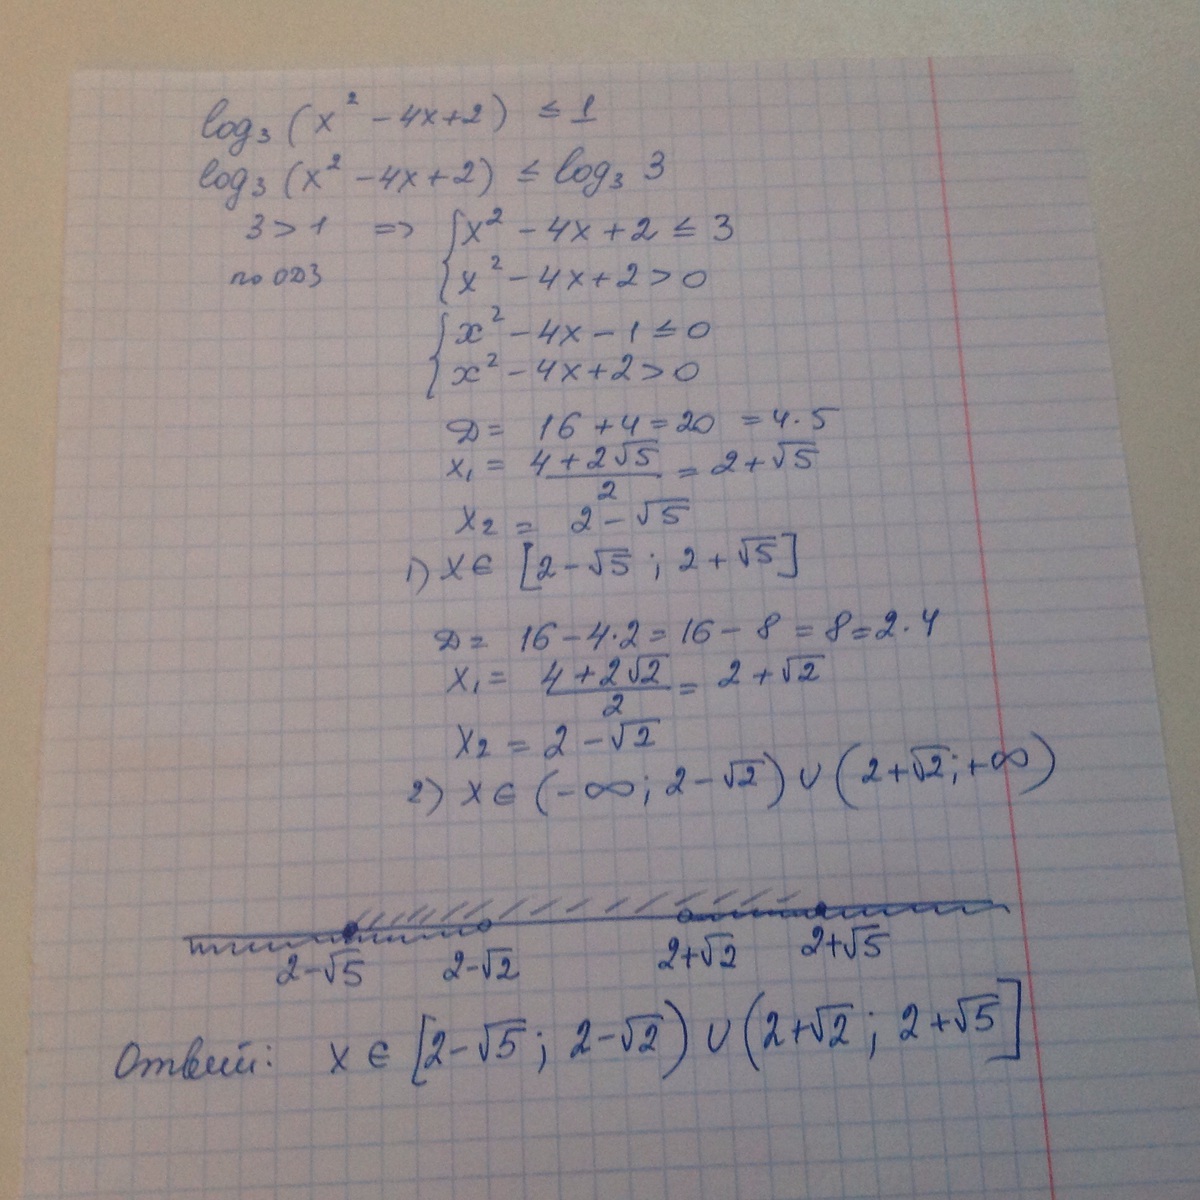 log₃(x² - 4x+2) ≤ 1
log₃(x² - 4x+2) ≤ log₃ 3
3 > 1 => { x² - 4x + 2 ≤ 3
по ОДЗ x² - 4x + 2 > 0
{ x² - 4x - 1 ≤ 0
x² - 4x + 2 > 0
D = 16 + 4 = 20 = 4·5
x₁ = (4 + 2√5)/2 = 2 + √5
x₂ = 2 - √5
1) x ∈ [2 - √5 ; 2 + √5]
D = 16 - 4·2 = 16 - 8 = 8 = 2·4
x₁ = (4 + 2√2)/2 = 2 + √2
x₂ = 2 - √2
2) x ∈ (-∞; 2 - √2) ∪ (2+√2; +∞)
2-√5 2-√2 2+√2 2+√5
Ответ: x ∈ [2-√5 ; 2-√2) ∪ (2+√2 ; 2+√5]